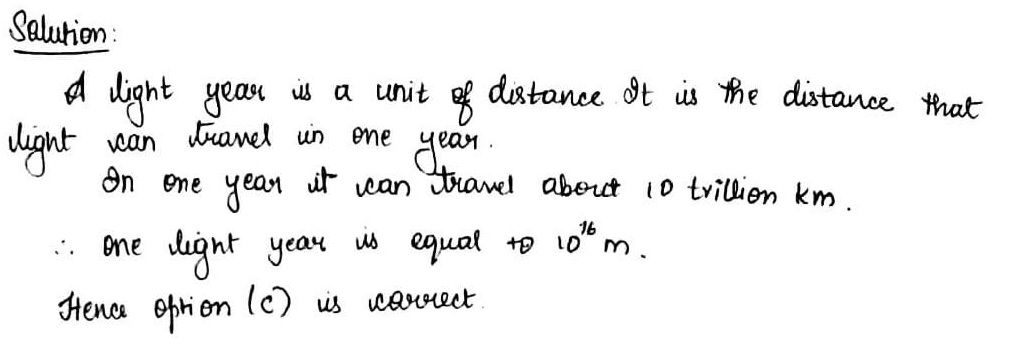 Solution:
A light year is a unit of distance It is the distance that
light can travel in one year.
In one year it can travel about 10 trillion km.
∴ one light year is equal to 10¹⁶ m.
Hence option (c) is correct.